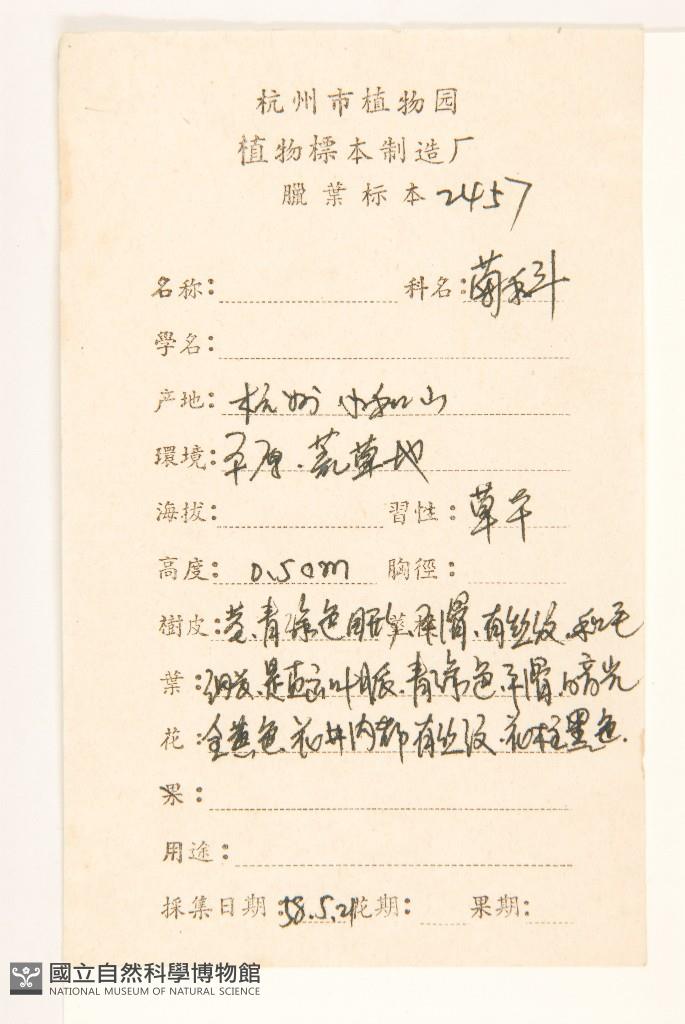 杭州市植物园
植物標本制造厂
臘葉标本 2457
名称： 科名：菊科
學名：
产地：杭州 小和山
環境：平原.荒草地
海拔： 習性：草本
高度：0.50m 胸徑：
樹皮：茎.青绿色 平滑.有丝纹.和毛
葉： 是 叶脈.青绿色.平滑.暗光
花：全黄色.花 内都有丝纹.花柱黑色.
果：
用途：
採集日期：58.5.21 花期： 果期：
國立自然科學博物館
NATIONAL MUSEUM OF NATURAL SCIENCE